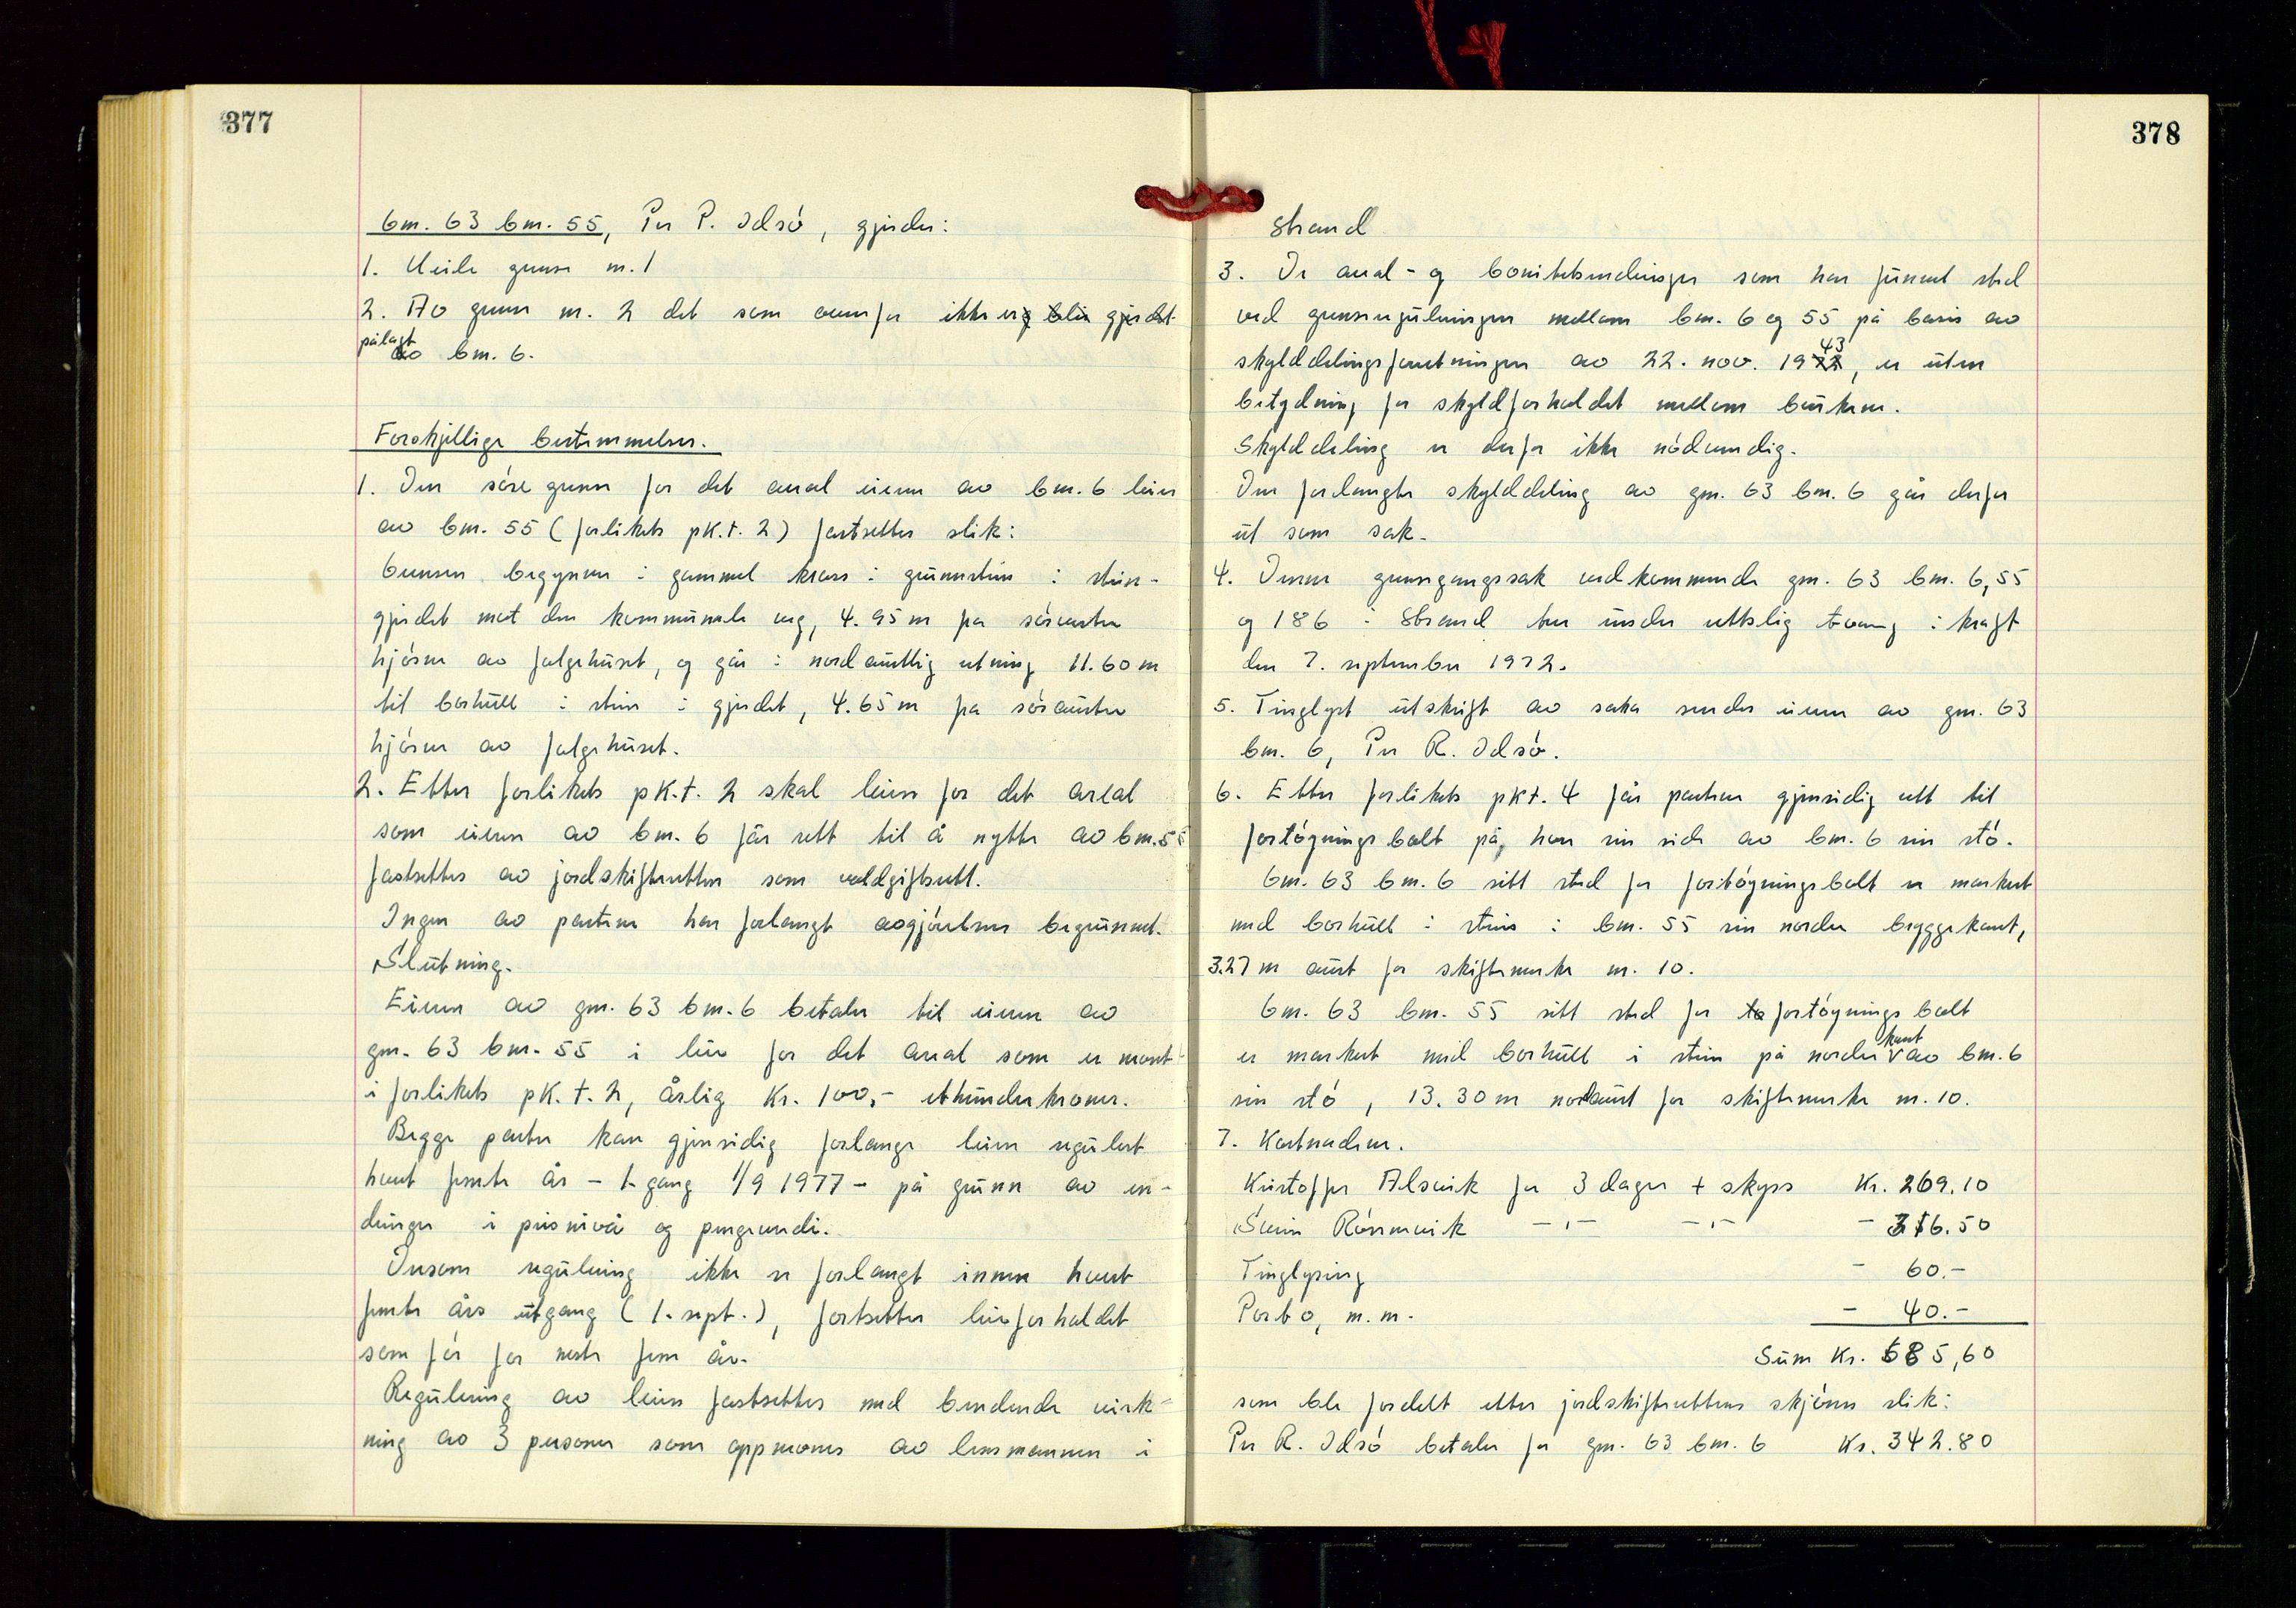 377
Gnr. 63 bnr. 55, Per P. Idsö, gjerder:
1. Heile grense nr. 1
2. Av grense nr. 2 det som ovenfor ikke er gjerdet
pålagt
av bnr. 6.
Forskjellige bestemmelser.
1. Den söre grense for det areal eieren av bnr. 6 leier
av bnr. 55 (forlikets pk.t. 2) fastsettes slik:
Grensen begynner i gammel kross i grunnstein i stein-
gjerdet mot den kommunale veg, 4.95 m fra söraustre
hjörne av følgehuset, og går i nordaustlig retning 11.60 m
til borhull i stein i gjerdet, 4.65 m fra söraustre
hjörne av følgehuset.
2. Etter forlikets pk.t. 2 skal leien for det areal
som eieren av bnr. 6 får rett til å nytte av bnr. 55
fastsettes av jordskifteretten som voldgiftsrett.
Ingen av partene har forlangt avgjörelsen begrunnet.
Slutning.
Eieren av gnr. 63 bnr. 6 betaler til eieren av
gnr. 63 bnr. 55 i leie for det areal som er nevnt
i forlikets pk.t. 2, årlig kr. 100,- etthundrekroner.
Begge parter kan gjensidig forlange leien regulert
hvert femte år - 1. gang 1/9 1977 - på grunn av en-
dringer i prisnivå og pengeverdi.
Dersom regulering ikke er forlangt innen hvert
femte års utgang (1. sept.), fortsetter leieforholdet
som för for neste fem år.
Regulering av leien fastsettes med bindende virk-
ning av 3 personer som oppnevnes av lensmannen i
378
Strand
3. De areal- og bonitetsendringer som har funnet sted
ved grensereguleringen mellom bnr. 6 og 55 på basis av
43
skylddelingsforretningen av 22. nov. 1922, er uten
betydning for skyldforholdet mellom brukene.
Skylddeling er derfor ikke nödvendig.
Den forlangte skylddeling av gnr. 63 bnr. 6 går derfor
ut som sak.
4. Denne grensegangssak vedkommende gnr. 63 bnr. 6, 55
og 186 i Strand trer under rettslig tvang i kraft
den 7. september 1972.
5. Tinglyst utskrift av saka sendes eieren av gnr. 63
bnr. 6, Per R. Idsö.
6. Etter forlikets pkt. 4 får partene gjensidig rett til
fortöyningsbolt på hver sin side av bnr. 6 sin stö.
Gnr. 63 bnr. 6 sitt sted for fortöyningsbolt er merket
med borhull i stein i bnr. 55 sin nordre bryggekant,
3.27 m aust for skiftemerke nr. 10.
Gnr. 63 bnr. 55 sitt sted for fortöyningsbolt
kant
er merket med borhull i stein på nordre av bnr. 6
sin stö, 13.30 m nordaust for skiftemerke nr. 10.
7. Kostnadene.
Kristoffer Alsvik for 3 dager + skyss kr. 269.10
Svein Rönnevik -"- -"- - 316.50
Tinglysing - 60.-
Porto, m.m. - 40.-
Sum kr. 685,60
som ble fordelt etter jordskifterettens skjönn slik:
Per R. Idsö betaler for gnr. 63 bnr. 6 kr. 342.80